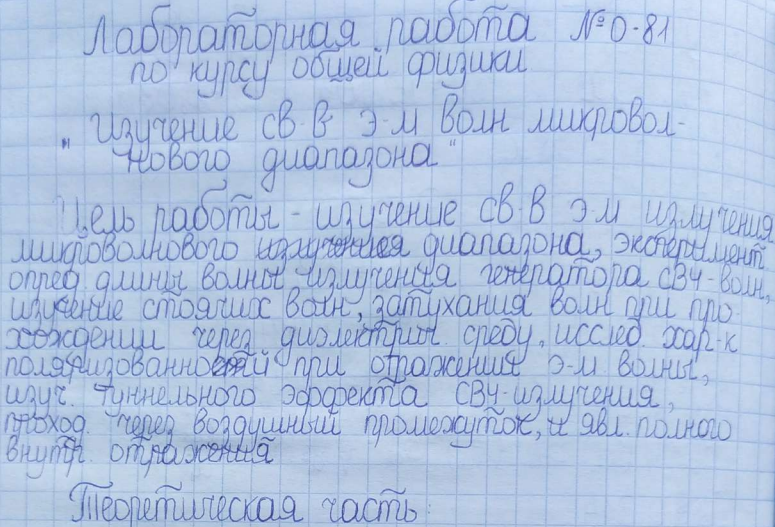 Лабораторная работа №О-81
по курсу общей физики
„Изучение св-в э-м волн микровол-
нового диапазона"
Цель работы - изучение св-в э-м излучения
микроволнового излучения диапазона, эксперимент.
опред. длины волны излучения генератора СВЧ-волн,
изучение стоячих волн, затухания волн при про-
хождении через диэлектрич. среду, исслед. хар-к
поляризованностей при отражении э-м волны,
изуч. туннельного эффекта СВЧ-излучения,
проход. через воздушный промежуток, и явл. полного
внутр. отражения
Теоретическая часть: